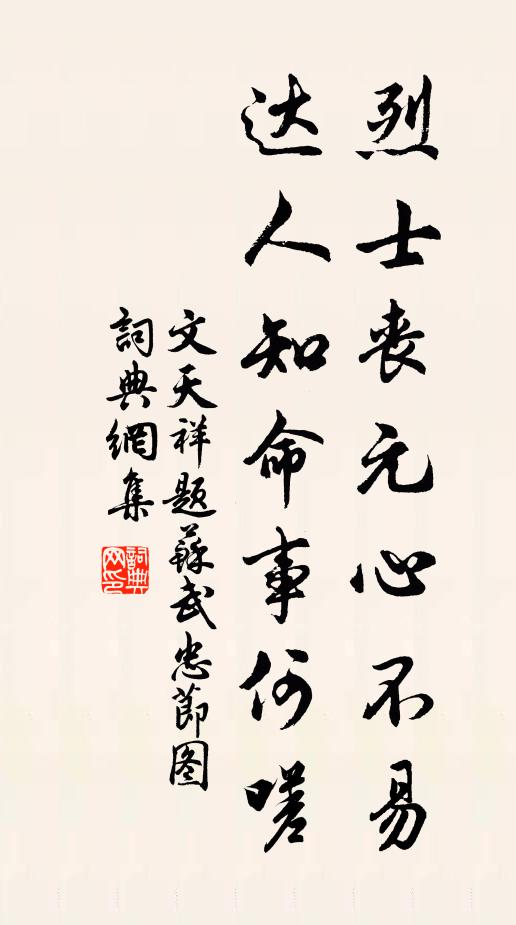 烈士丧元心不易
达人知命事何嗟
文天祥题蘇武忠節图
詞典網集
詞典网印